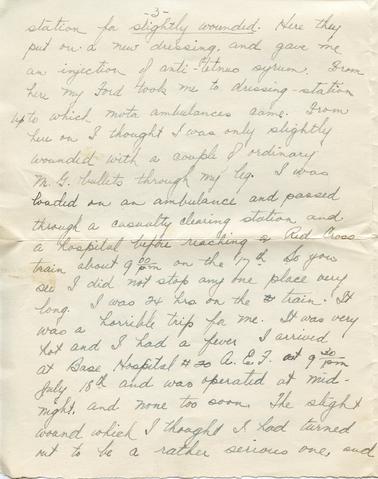 -3-
station for slightly wounded. Here they
put on a new dressing, and gave me
an injection of anti-tetnus syrum. From
here my Ford took me to dressing-station
up to which mota ambulances came. From
here on I thought I was only slightly
wounded with a couple of ordinary
M.G. bullets through my leg. I was
loaded on an ambulance and passed
through a casualty clearing station and
a hospital before reaching a Red Cross
train about 9 00 pm on the 17th. So you
see I did not stop any one place very
long. I was 24 hrs on the train. It
was a horrible trip for me. It was very
hot and I had a fever. I arrived
at Base Hospital # 20 A.E.F. at 9 30 pm
July 18th and was operated at mid-
night, and none too soon. The slight
wound which I thought I had turned
out to be a rather serious one, and